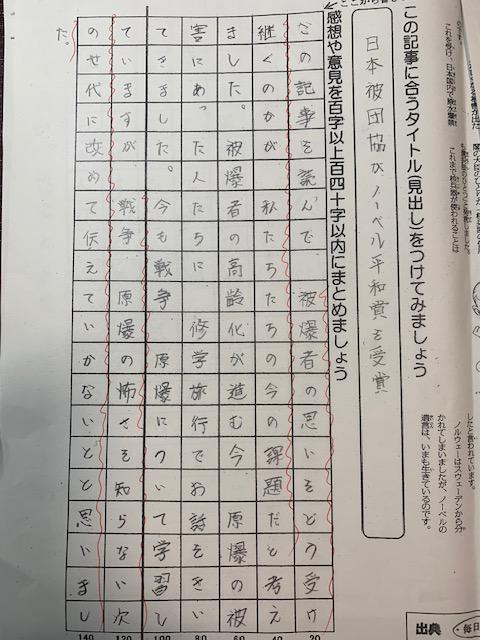 したと言われています。
ノルウェーはスウェーデンから分
かれてしまいましたが、ノーベルの
遺言は、いまも生きているのです。
出典
この記事に合うタイトル(見出し)をつけてみましょう
日本被団協が、ノーベル平和賞を受賞
感想や意見を百字以上百四十字以内にまとめましょう
この記事を読んで 被爆者の思いをどう受け
継ぐのかが私たちの今の課題だと考え
ました。被爆者の高齢化が進む今原爆の被
害にあったたちに修学旅行でお話をきい
てきました。今も戦争 原爆について学習し
ていますが 戦争 原爆の怖さを知らない次
のせ代に改めて伝えていかないとと思いまし
た。
20
40
60
80
100
120
140